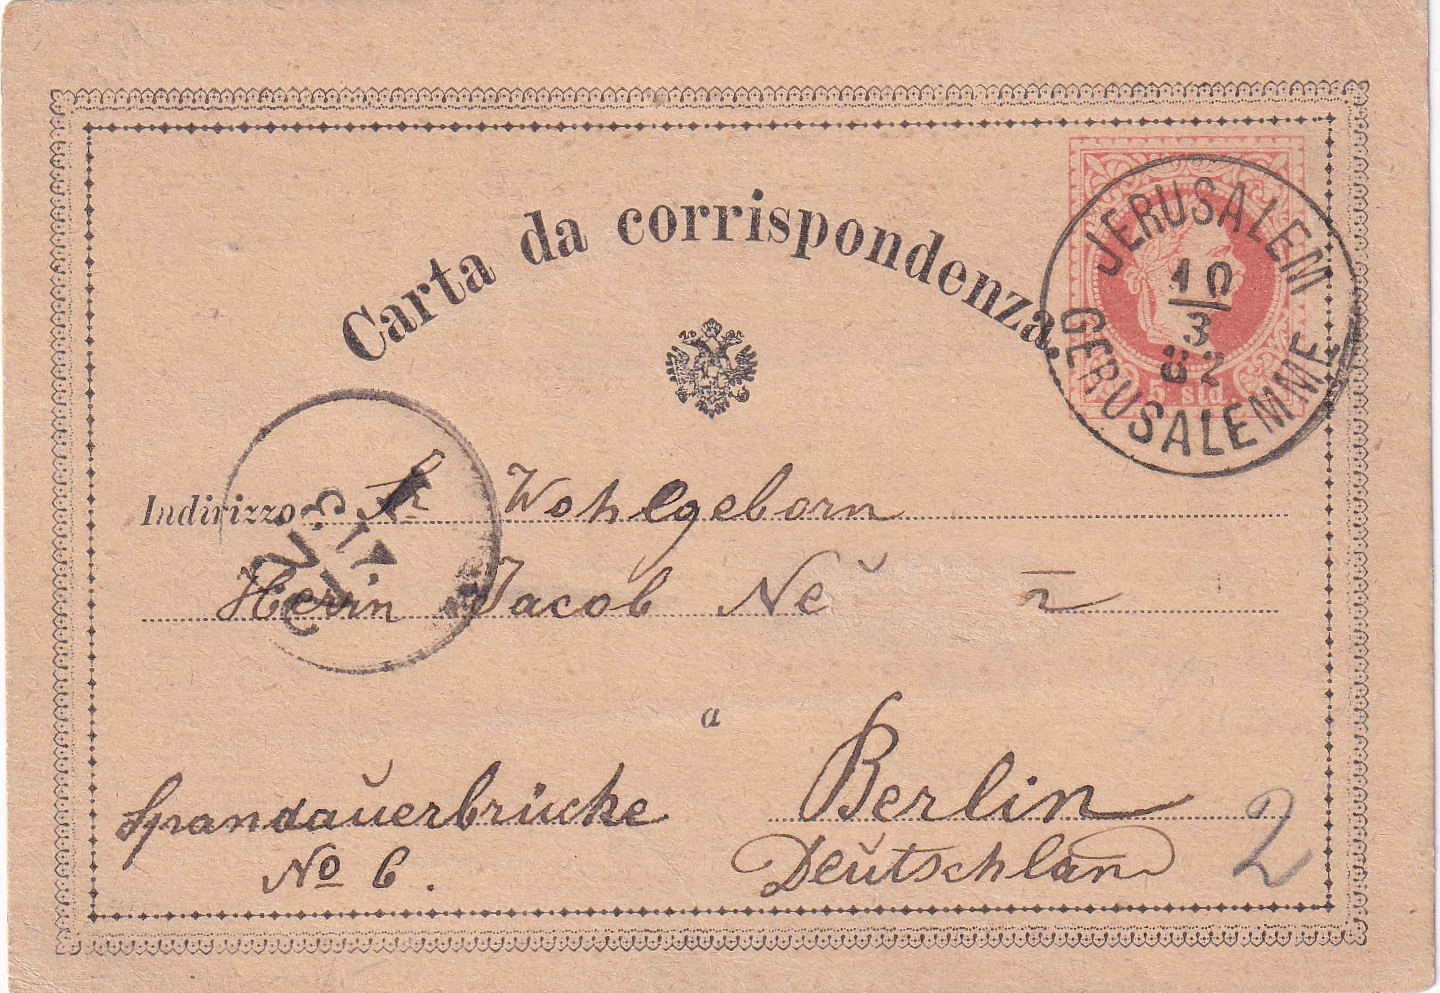 Carta da corrispondenza.
JERUSALEM
10
3
82
GERUSALEMME
5 sld.
Indirizzo Sr Wohlgeborn
Herrn Jacob
a Berlin
Spandauerbrücke
No 6.
Deutschland
2